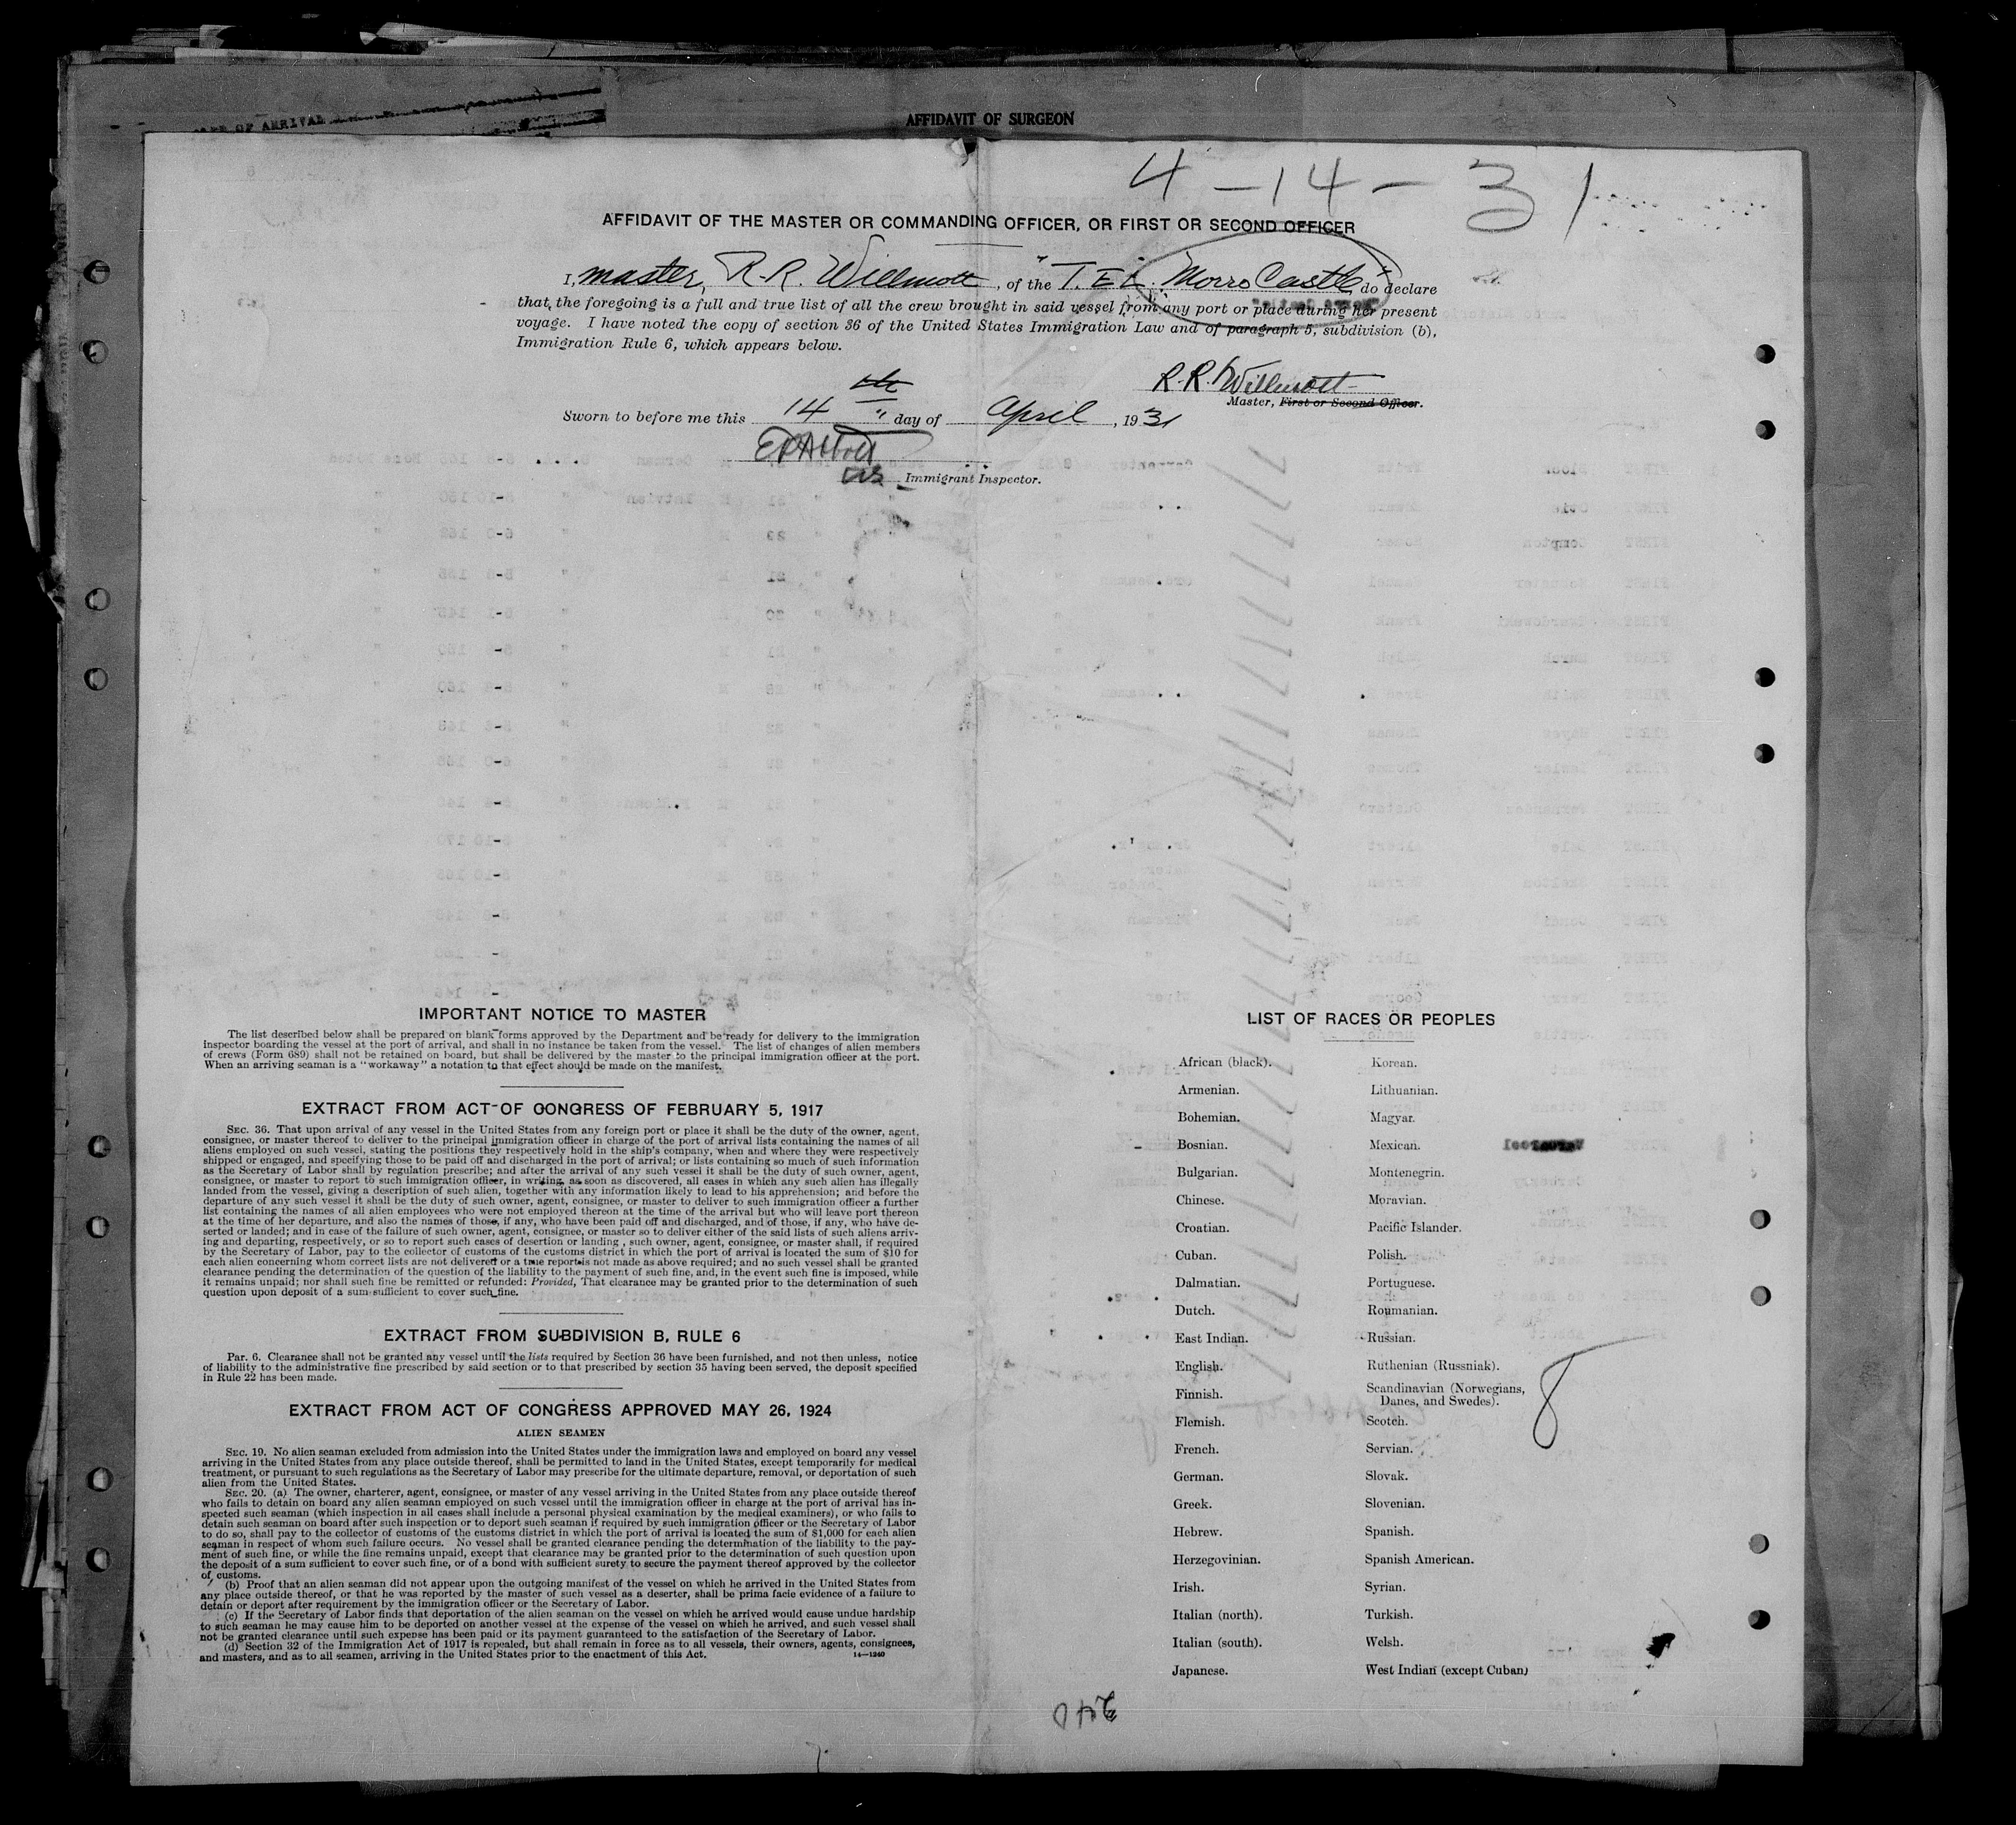 AFFIDAVIT OF SURGEON
OF ARRIVAL
4-14-31
AFFIDAVIT OF THE MASTER OR COMMANDING OFFICER, OR FIRST OR SECOND OFFICER
I, master, R.R. Willmott, of the "T.E.L. Morro Castle" do declare
that the foregoing is a full and true list of all the crew brought in said vessel from any port or place during her present
voyage. I have noted the copy of section 36 of the United States Immigration Law and of paragraph 5, subdivision (b),
Immigration Rule 6, which appears below.
R.R. Willmott
Master, First or Second Officer.
Sworn to before me this 14 " day of April, 1931
Immigrant Inspector.
IMPORTANT NOTICE TO MASTER
The list described below shall be prepared on blank forms approved by the Department and be ready for delivery to the immigration
inspector boarding the vessel at the port of arrival, and shall in no instance be taken from the vessel. The list of changes of alien members
of crews (Form 689) shall not be retained on board, but shall be delivered by the master to the principal immigration officer at the port.
When an arriving seaman is a "workaway" a notation to that effect should be made on the manifest.
EXTRACT FROM ACT OF CONGRESS OF FEBRUARY 5, 1917
SEC. 36. That upon arrival of any vessel in the United States from any foreign port or place it shall be the duty of the owner, agent,
consignee, or master thereof to deliver to the principal immigration officer in charge of the port of arrival lists containing the names of all
aliens employed on such vessel, stating the positions they respectively hold in the ship's company, when and where they were respectively
shipped or engaged, and specifying those to be paid off and discharged in the port of arrival; or lists containing so much of such information
as the Secretary of Labor shall by regulation prescribe; and after the arrival of any such vessel it shall be the duty of such owner, agent,
consignee, or master to report to such immigration officer, in writing, as soon as discovered, all cases in which any such alien has illegally
landed from the vessel, giving a description of such alien, together with any information likely to lead to his apprehension; and before the
departure of any such vessel it shall be the duty of such owner, agent, consignee, or master to deliver to such immigration officer a further
list containing the names of all alien employees who were not employed thereon at the time of the arrival but who will leave port thereon
at the time of her departure, and also the names of those, if any, who have been paid off and discharged, and of those, if any, who have de-
serted or landed; and in case of the failure of such owner, agent, consignee, or master so to deliver either of the said lists of such aliens arriv-
ing and departing, respectively, or so to report such cases of desertion or landing, such owner, agent, consignee, or master shall, if required
by the Secretary of Labor, pay to the collector of customs of the customs district in which the port of arrival is located the sum of $10 for
each alien concerning whom correct lists are not delivered or a true report is not made as above required; and no such vessel shall be granted
clearance pending the determination of the question of the liability to the payment of such fine, and, in the event such fine is imposed, while
it remains unpaid; nor shall such fine be remitted or refunded: Provided, That clearance may be granted prior to the determination of such
question upon deposit of a sum sufficient to cover such fine.
EXTRACT FROM SUBDIVISION B, RULE 6
Par. 6. Clearance shall not be granted any vessel until the lists required by Section 36 have been furnished, and not then unless, notice
of liability to the administrative fine prescribed by said section or to that prescribed by section 35 having been served, the deposit specified
in Rule 22 has been made.
EXTRACT FROM ACT OF CONGRESS APPROVED MAY 26, 1924
ALIEN SEAMEN
SEC. 19. No alien seaman excluded from admission into the United States under the immigration laws and employed on board any vessel
arriving in the United States from any place outside thereof, shall be permitted to land in the United States, except temporarily for medical
treatment, or pursuant to such regulations as the Secretary of Labor may prescribe for the ultimate departure, removal, or deportation of such
alien from the United States.
SEC. 20. (a) The owner, charterer, agent, consignee, or master of any vessel arriving in the United States from any place outside thereof
who fails to detain on board any alien seaman employed on such vessel until the immigration officer in charge at the port of arrival has in-
spected such seaman (which inspection in all cases shall include a personal physical examination by the medical examiners), or who fails to
detain such seaman on board after such inspection or to deport such seaman if required by such immigration officer or the Secretary of Labor
to do so, shall pay to the collector of customs of the customs district in which the port of arrival is located the sum of $1,000 for each alien
seaman in respect of whom such failure occurs. No vessel shall be granted clearance pending the determination of the liability to the pay-
ment of such fine, or while the fine remains unpaid, except that clearance may be granted prior to the determination of such question upon
the deposit of a sum sufficient to cover such fine, or of a bond with sufficient surety to secure the payment thereof approved by the collector
of customs.
(b) Proof that an alien seaman did not appear upon the outgoing manifest of the vessel on which he arrived in the United States from
any place outside thereof, or that he was reported by the master of such vessel as a deserter, shall be prima facie evidence of a failure to
detain or deport after requirement by the immigration officer or the Secretary of Labor.
(c) If the Secretary of Labor finds that deportation of the alien seaman on the vessel on which he arrived would cause undue hardship
to such seaman he may cause him to be deported on another vessel at the expense of the vessel on which he arrived, and such vessel shall
not be granted clearance until such expense has been paid or its payment guaranteed to the satisfaction of the Secretary of Labor.
(d) Section 32 of the Immigration Act of 1917 is repealed, but shall remain in force as to all vessels, their owners, agents, consignees,
and masters, and as to all seamen, arriving in the United States prior to the enactment of this Act.
14—1240
LIST OF RACES OR PEOPLES
African (black). Korean.
Armenian. Lithuanian.
Bohemian. Magyar.
Bosnian. Mexican.
Bulgarian. Montenegrin.
Chinese. Moravian.
Croatian. Pacific Islander.
Cuban. Polish.
Dalmatian. Portuguese.
Dutch. Roumanian.
East Indian. Russian.
English. Ruthenian (Russniak).
Finnish. Scandinavian (Norwegians,
Danes, and Swedes).
Flemish. Scotch.
French. Servian.
German. Slovak.
Greek. Slovenian.
Hebrew. Spanish.
Herzegovinian. Spanish American.
Irish. Syrian.
Italian (north). Turkish.
Italian (south). Welsh.
Japanese. West Indian (except Cuban)
8